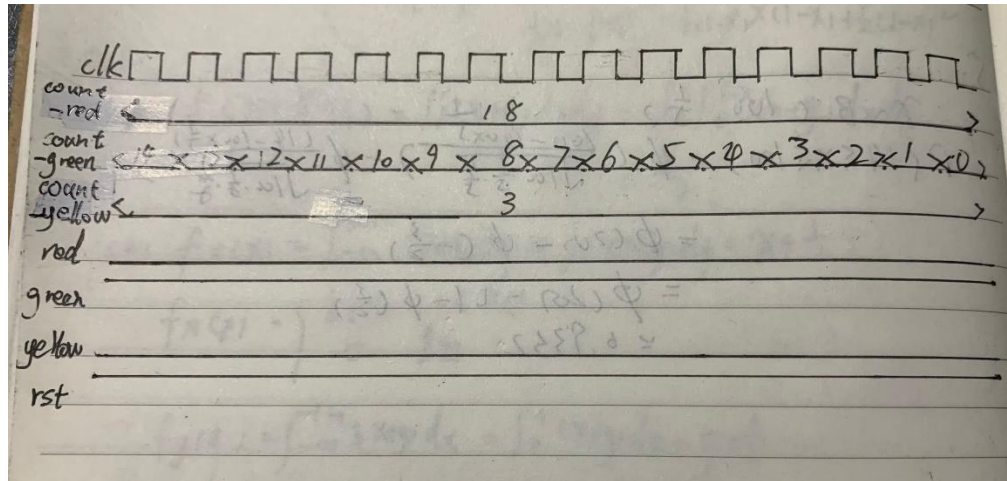 clk
count
-red 18
count
-green 14 13 12 11 10 9 8 7 6 5 4 3 2 1 0
count
-yellow 3
red
green
yellow
rst